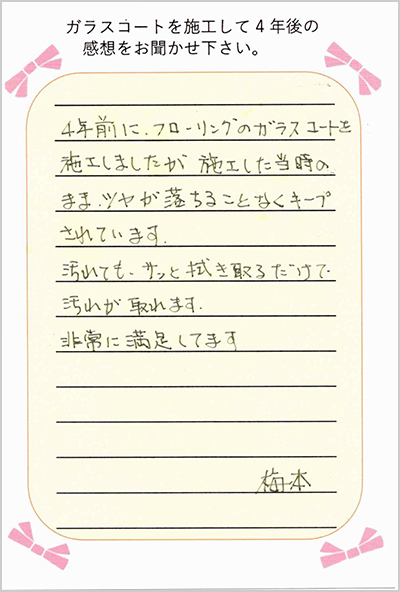 ガラスコートを施工して4年後の
感想をお聞かせ下さい。
4年前に、フローリングのガラスコートを
施工しましたが 施工した当時の
まま、ツヤが落ちることなくキープ
されています.
汚れても、サッと拭き取るだけで
汚れが 取れます.
非常に満足してます
梅本